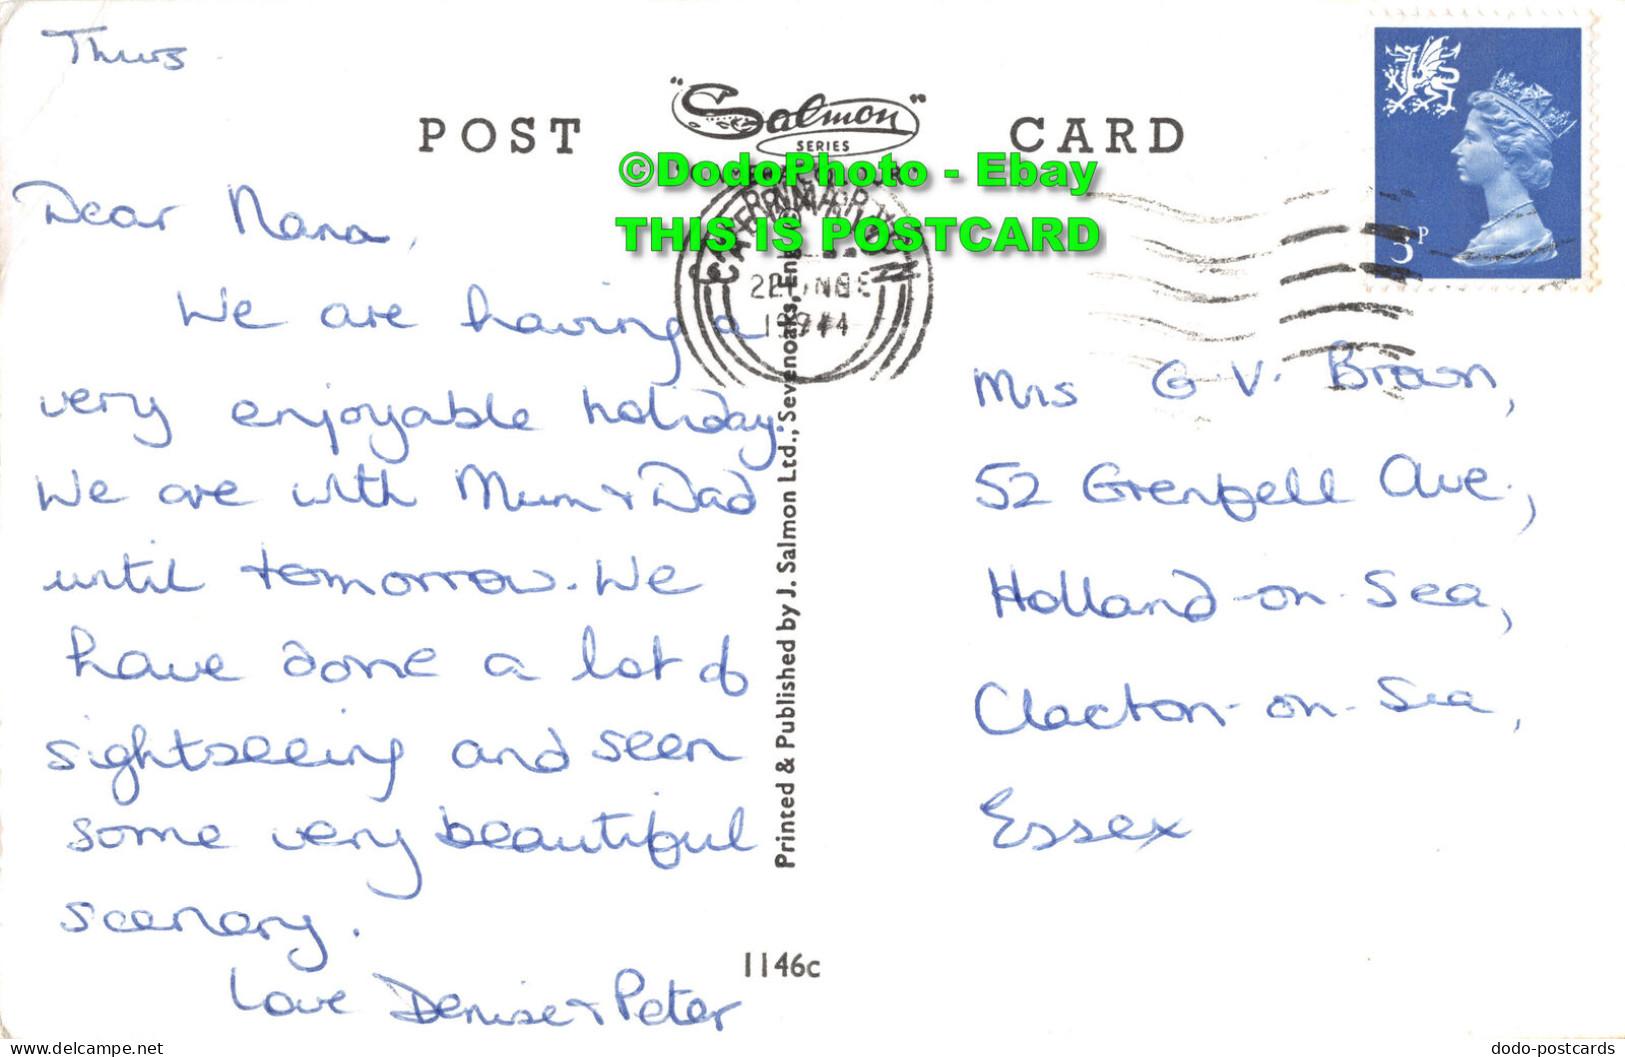 Thurs
POST CARD
"Salmon"
SERIES
©DodoPhoto - Ebay
THIS IS POSTCARD
3P
1974
Dear Nana,
We are having a
very enjoyable holiday.
We are with Mum & Dad
until tomorrow. We
have done a lot of
sightseeing and seen
some very beautiful
scenery.
Love Denise & Peter
Printed & Published by J. Salmon Ltd., Sevenoaks, Eng.
1146c
Mrs G. V. Brown,
52 Grenfell Ave.,
Holland-on-Sea,
Clacton-on-Sea,
Essex
www.delcampe.net
dodo-postcards